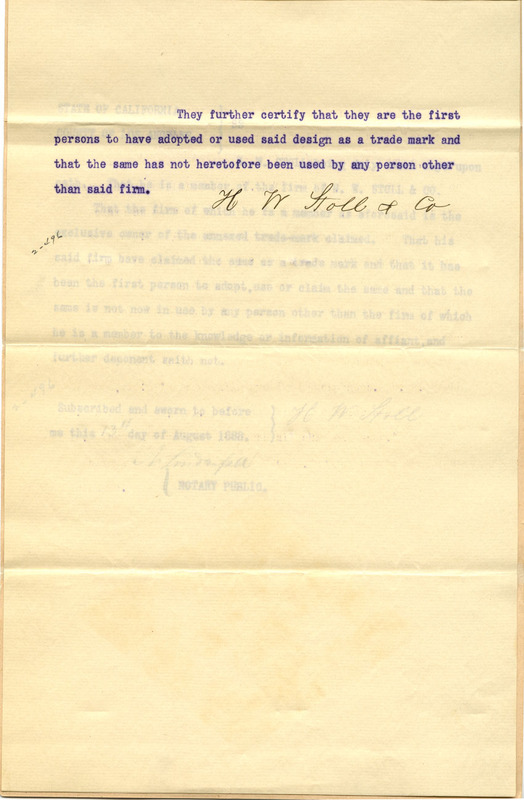 They further certify that they are the first
persons to have adopted or used said design as a trade mark and
that the same has not heretofore been used by any person other
than said firm.
H W Stoll & Co
2-296
STATE OF CALIFORNIA
upon
is a member of the firm of H. W. STOLL & CO.
That the firm of which he is a member as aforesaid is the
exclusive owner of the annexed trade-mark claimed. That his
said firm have claimed the same as a trade mark and that it has
been the first person to adopt, use or claim the same and that the
same is not now in use by any person other than the firm of which
he is a member to the knowledge or information of affiant, and
further deponent saith not.
Subscribed and sworn to before
me this 13th day of August 1888.
H W Stoll
NOTARY PUBLIC.